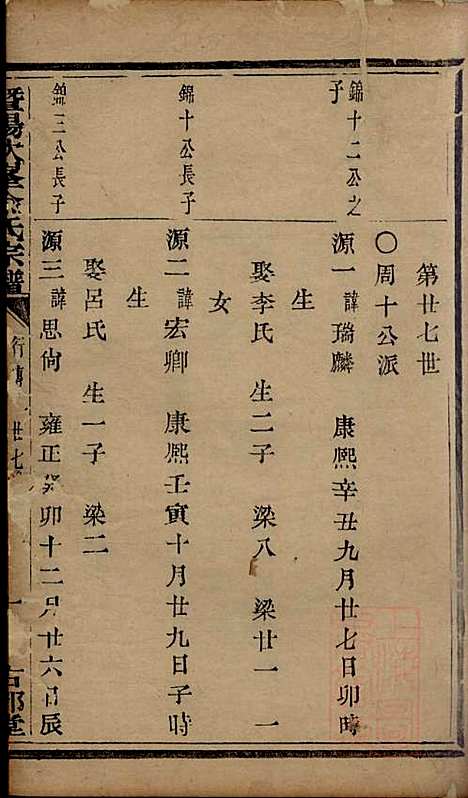 第廿七世
〇周十公派
錦十二公之子
源一 諱瑞麟 康熙辛丑九月廿七日卯時
生
娶李氏 生二子 梁八 梁廿一 一
女
錦十公長子
源二 諱宏卿 康熙壬寅十月廿九日子時
生
娶呂氏 生一子 梁二
錦三公長子
源三 諱思尙 雍正癸卯十二月廿六日辰
暨陽 氏宗譜
行傳 廿七
一